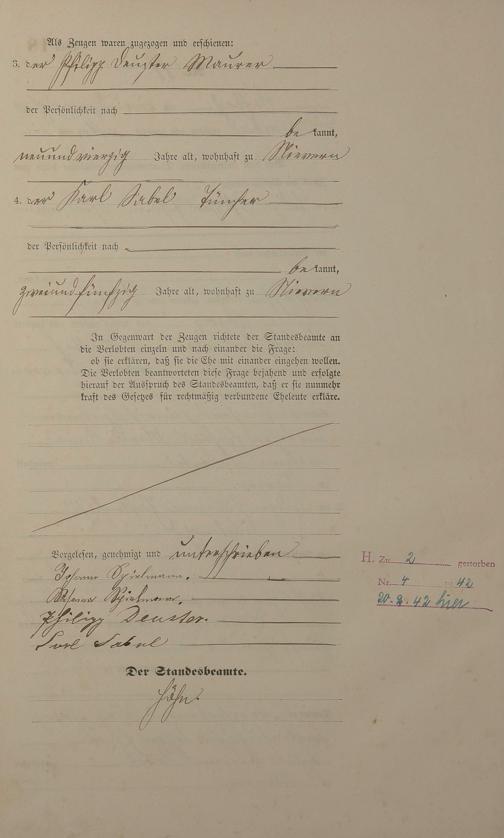 Als Zeugen waren zugezogen und erschienen:
3. der Philipp Deuster Maurer
der Persönlichkeit nach
be kannt,
neunundvierzig Jahre alt, wohnhaft zu Nievern
4. der Karl Sabel Tüncher
der Persönlichkeit nach
be kannt,
zweiundfünfzig Jahre alt, wohnhaft zu Nievern
In Gegenwart der Zeugen richtete der Standesbeamte an
die Verlobten einzeln und nach einander die Frage:
ob sie erklären, daß sie die Ehe mit einander eingehen wollen.
Die Verlobten beantworteten diese Frage bejahend und erfolgte
hierauf der Ausspruch des Standesbeamten, daß er sie nunmehr
kraft des Gesetzes für rechtmäßig verbundene Eheleute erkläre.
Vorgelesen, genehmigt und unterschrieben
Johann Spielmann.
Spielmann.
Philipp Deuster.
Karl Sabel
Der Standesbeamte.
Höhn.
H. Zu 2 gestorben
Nr. 4 42
20. 2. 42 hier